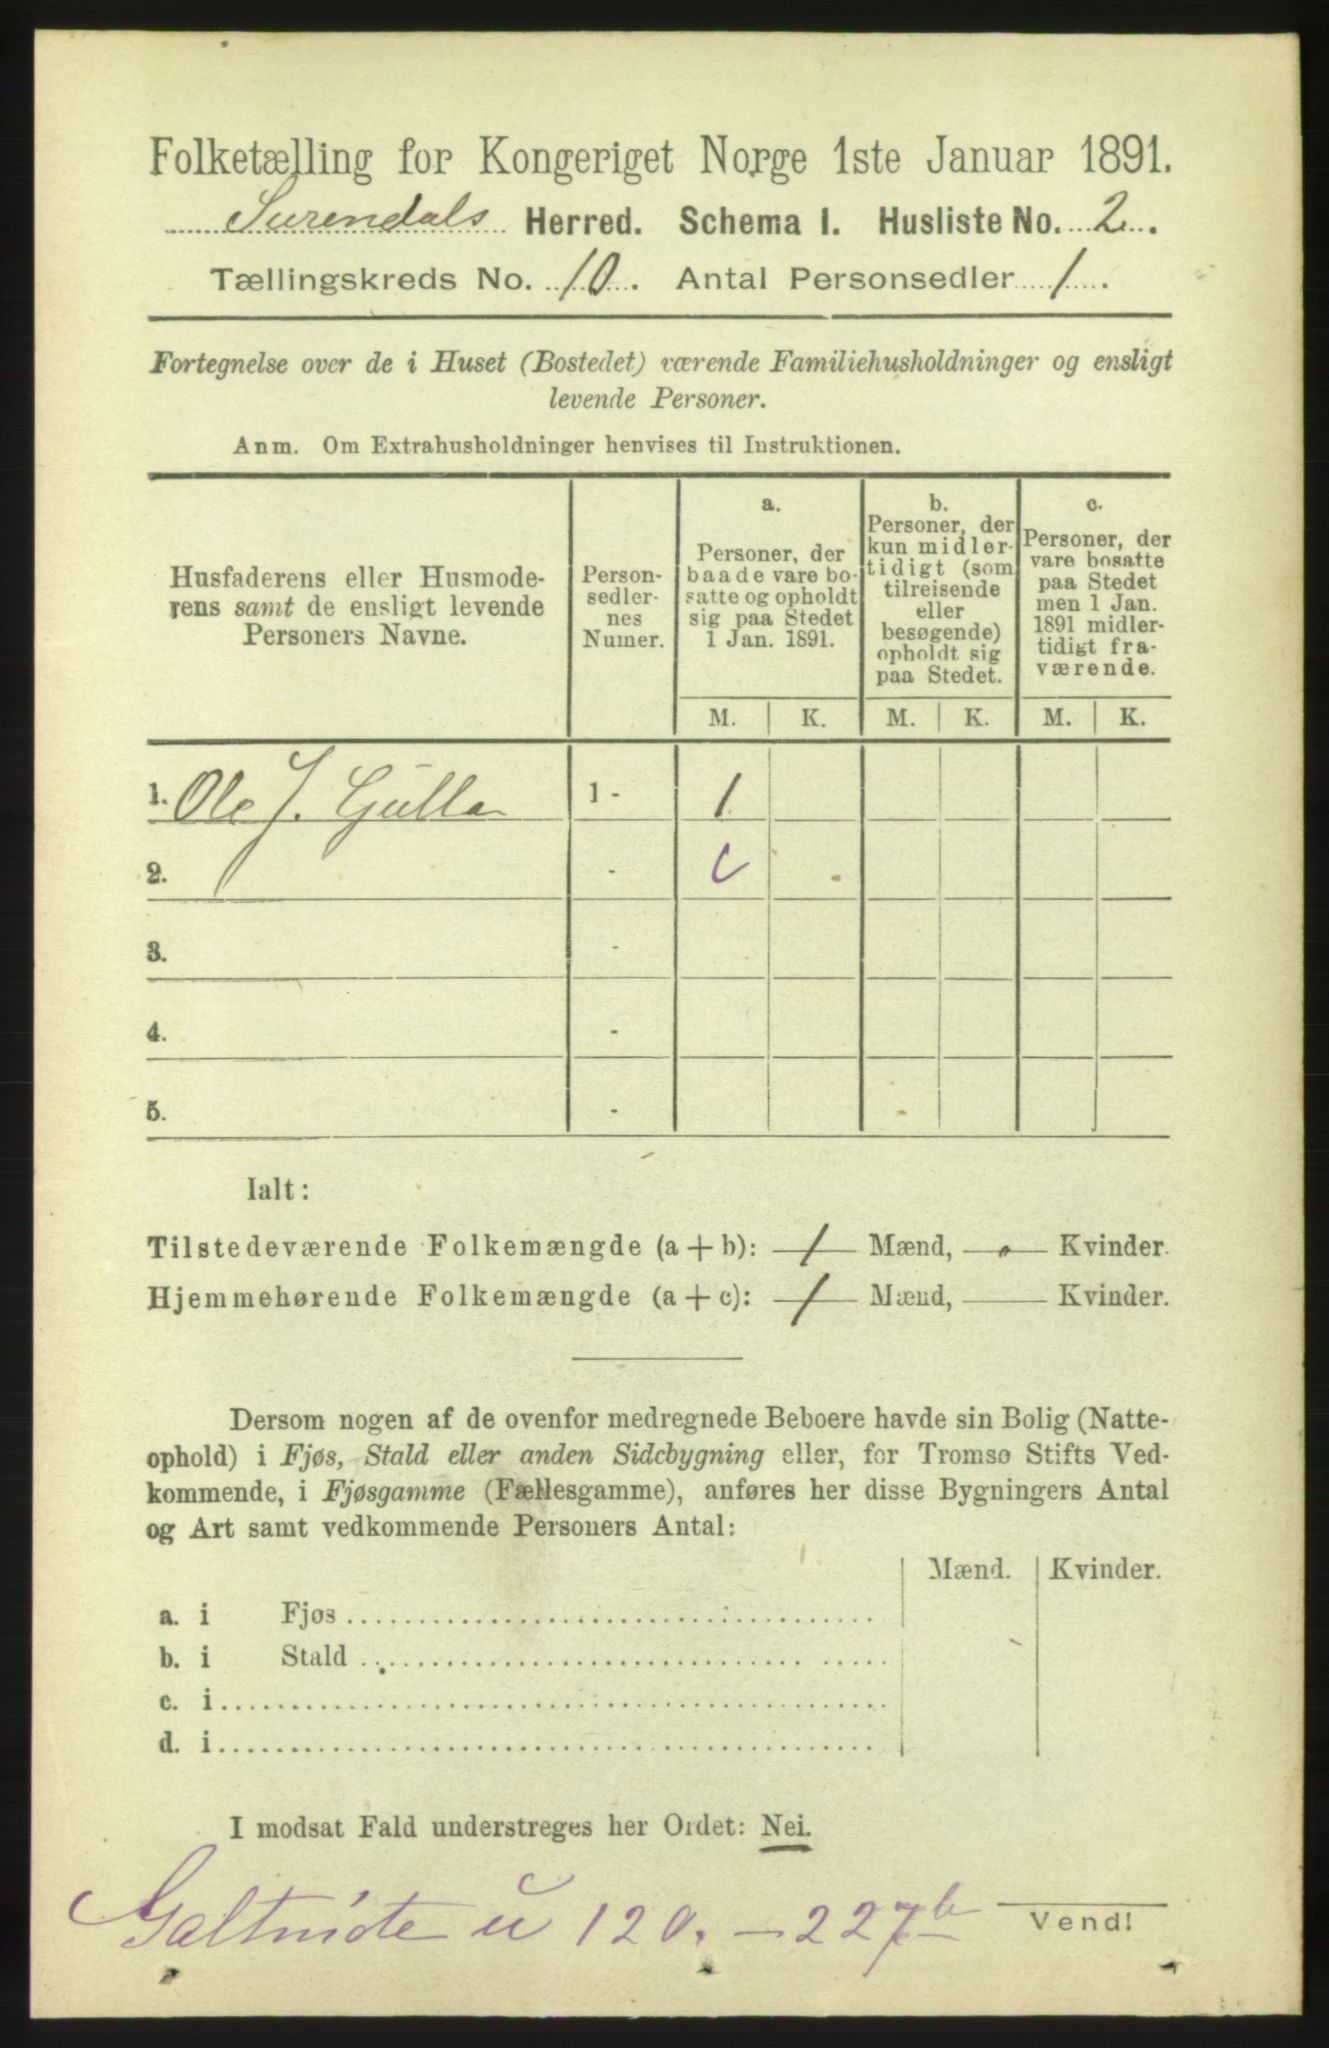 Folketælling for Kongeriget Norge 1ste Januar 1891.
Surendals Herred. Schema I. Husliste No. 2.
Tællingskreds No. 10. Antal Personsedler 1.
Fortegnelse over de i Huset (Bostedet) værende Familiehusholdninger og ensligt
levende Personer.
Anm. Om Extrahusholdninger henvises til Instruktionen.
Husfaderens eller Husmode-
rens samt de ensligt levende
Personers Navne.
Person-
sedler-
nes
Numer.
a.
Personer, der
baade vare bo-
satte og opholdt
sig paa Stedet
1 Jan. 1891.
b.
Personer, der
kun midler-
tidigt (som
tilreisende
eller
besøgende)
opholdt sig
paa Stedet.
c.
Personer, der
vare bosatte
paa Stedet
men 1 Jan.
1891 midler-
tidigt fra-
værende.
M. K. M. K. M. K.
1. Ole J. Gulla 1 - 1
2. -
3. -
4. -
5. -
Ialt:
Tilstedeværende Folkemængde (a + b): 1 Mænd, Kvinder.
Hjemmehørende Folkemængde (a + c): 1 Mænd, Kvinder.
Dersom nogen af de ovenfor medregnede Beboere havde sin Bolig (Natte-
ophold) i Fjøs, Stald eller anden Sidebygning eller, for Tromsø Stifts Ved-
kommende, i Fjøsgamme (Fællesgamme), anføres her disse Bygningers Antal
og Art samt vedkommende Personers Antal:
Mænd. Kvinder.
a. i Fjøs
b. i Stald
c. i
d. i
I modsat Fald understreges her Ordet: Nei.
u 120. - 227b
Vend!